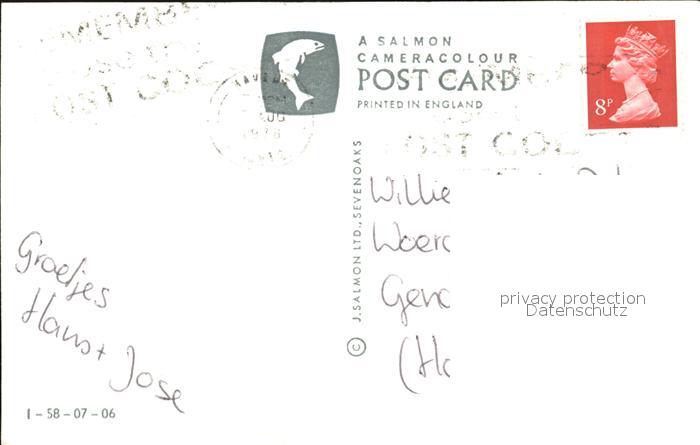 A SALMON
CAMERACOLOUR
POST CARD
PRINTED IN ENGLAND
8P
REMEMBER
POST CODE
AUG
1978
POST CODE
© J. SALMON LTD., SEVENOAKS
Willie
Woerd
Gend
(Ho
privacy protection
Datenschutz
Groetjes
Hans + Jose
1-58-07-06